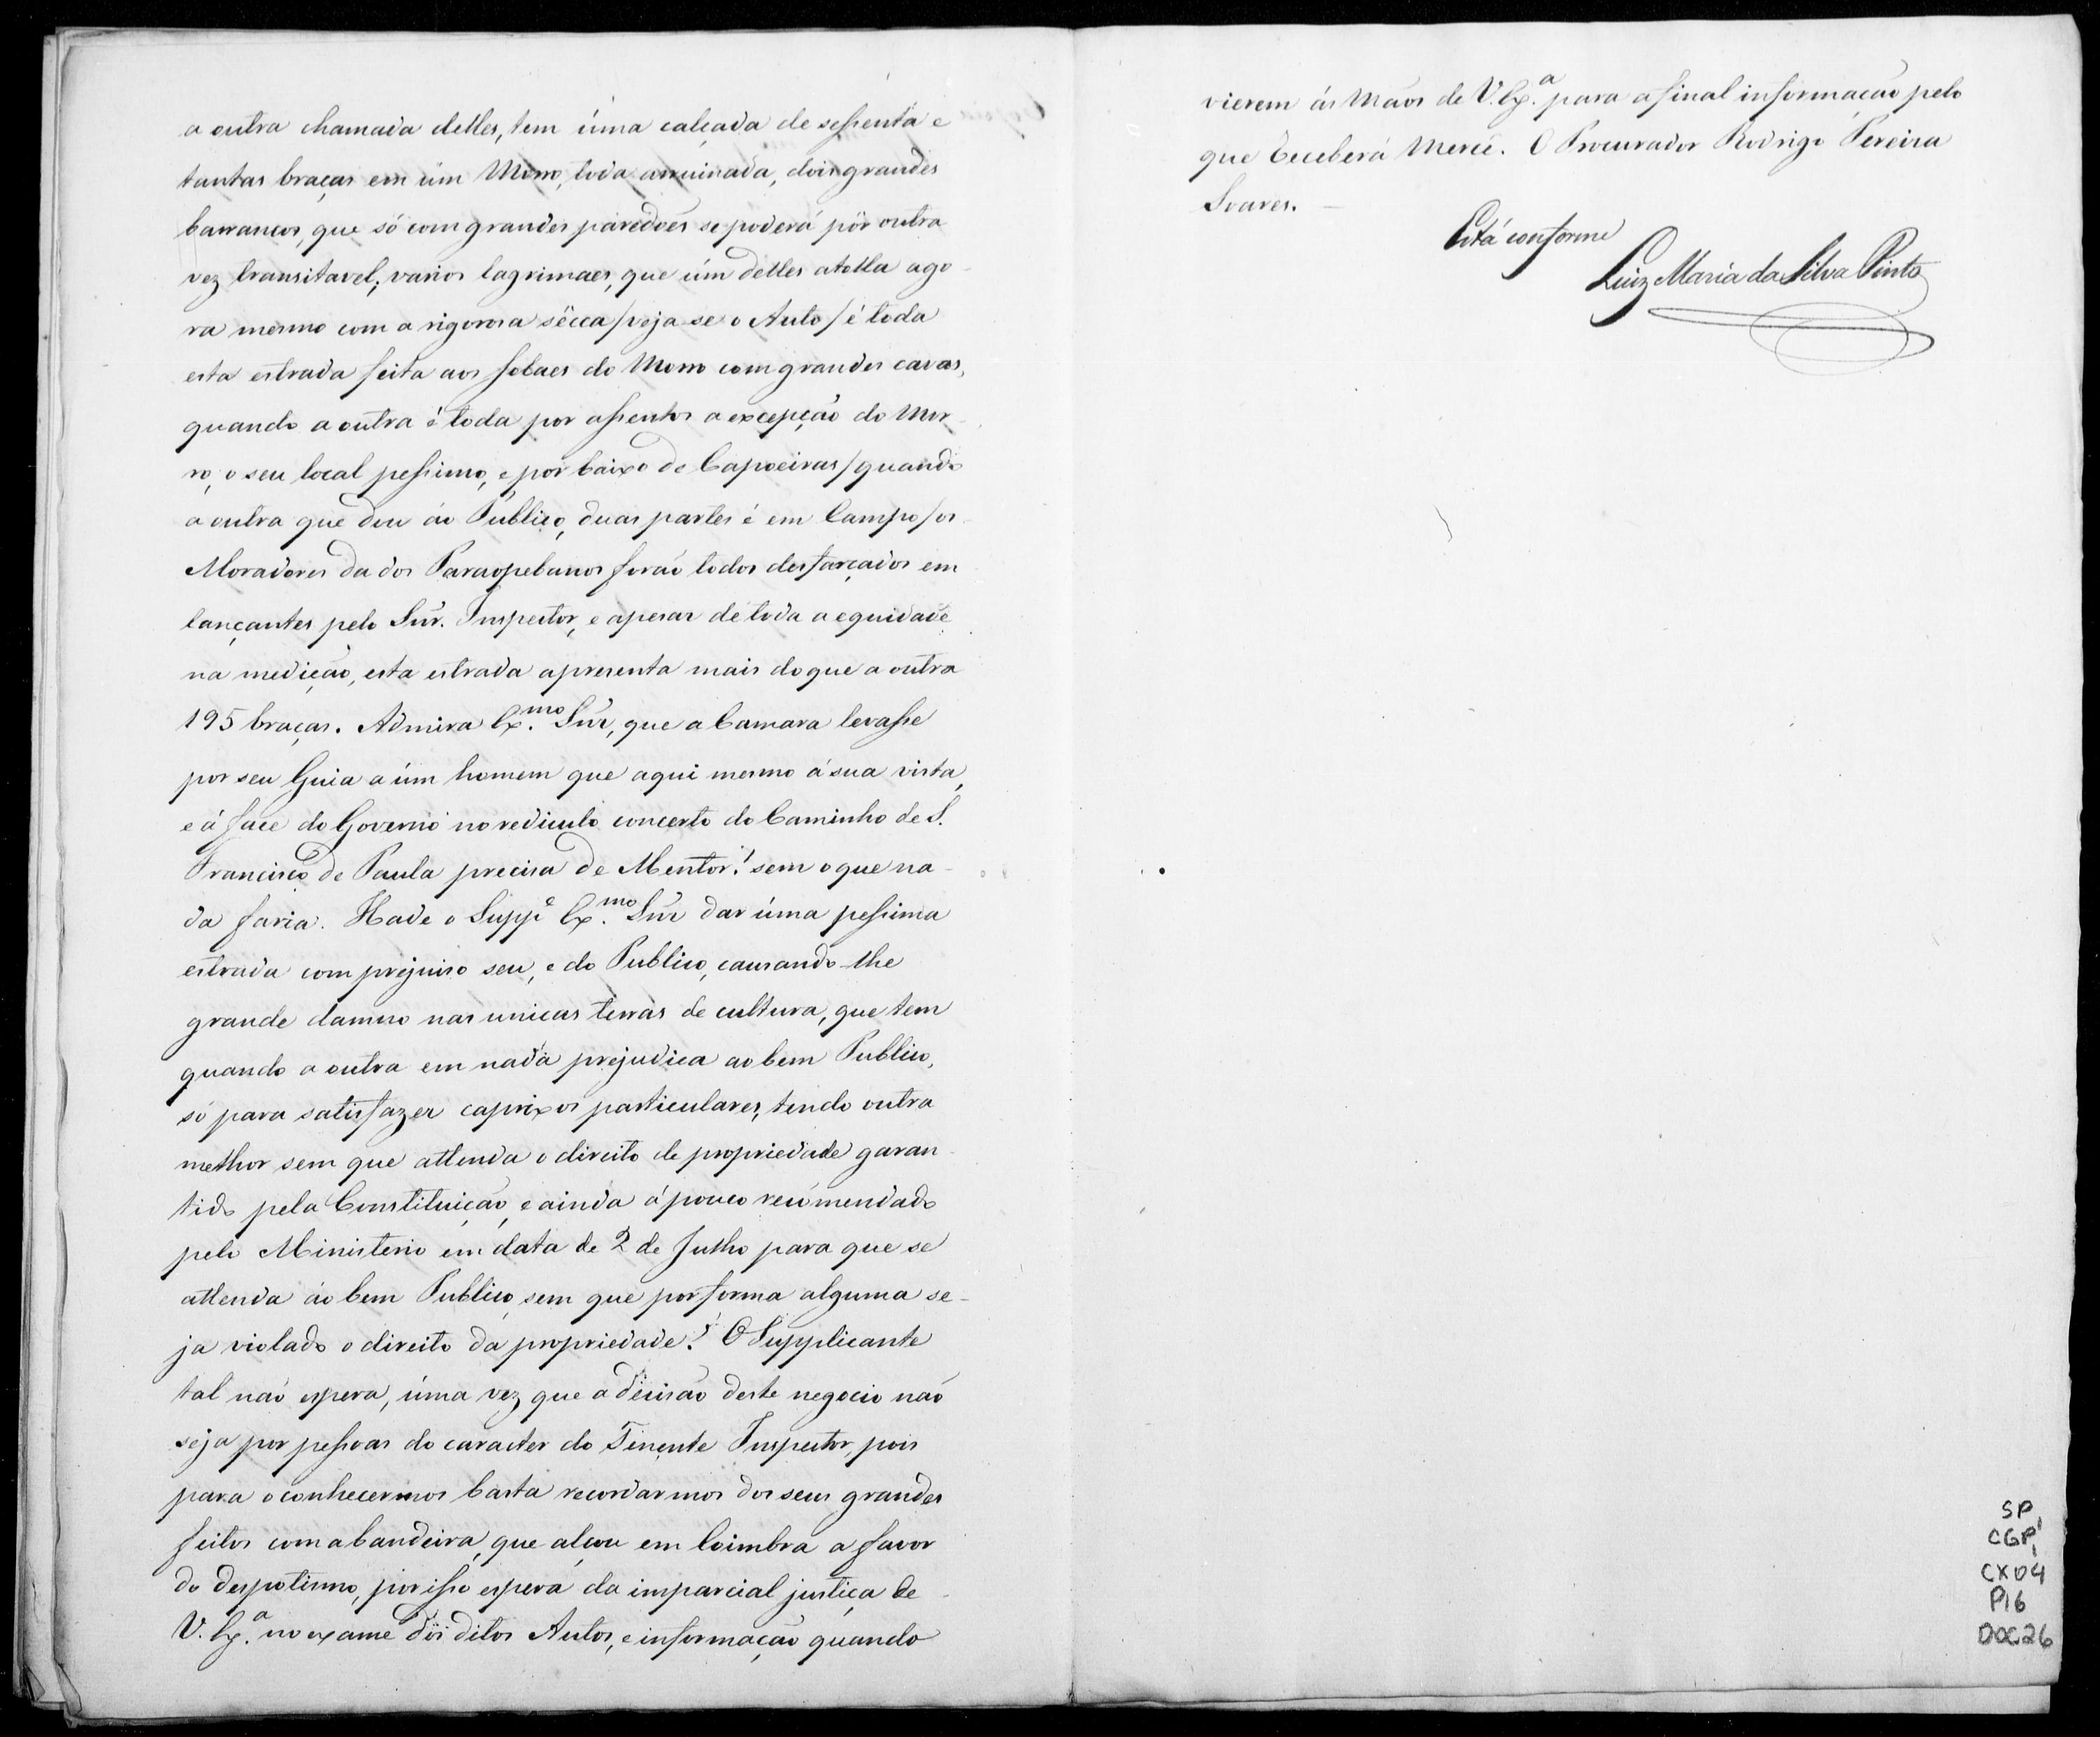 a outra chamada delles, tem úma calçada de sessenta e
tantas braças em úm Morro, toda arruinada, dois grandes
barrancos, que só com grandes paredões se poderá pôr outra
vez transitavel, varios lagrimaes, que úm delles atolla ago-
ra mesmo com a rigorosa sêcca / veja-se o Auto / é toda
esta estrada feita aos sobaes do Morro com grandes cavas,
quando a outra é toda por assentos a excepção do Mor-
ro, o seu local pessimo, e por baixo de Capoeiras / quando
a outra que deu áo Publico, duas partes é em Campo / os
Moradores da dos Paraopebanos forão todos desfarçados em
lançantes pelo Snr. Inspector, e apesar de toda a equidade
na medição, esta estrada apresenta mais do que a outra
195 braças. Admira Ex.mo Snr, que a Camara levasse
por seu Guia a úm homem que aqui mesmo á sua vista,
e á face do Governo no rediculo concerto do Caminho de S.
Francisco de Paula precisa de Mentor! sem o que na-
da faria. Hade o Supp.e Ex.mo Snr dar úma pessima
estrada com prejuiso seu, e do Publico, causando-lhe
grande damno nas unicas terras de cultura, que tem
quando a outra em nada prejudica ao bem Publico,
só para satisfazer caprixos particulares, tendo outra
melhor sem que attenda o direito de propriedade garan-
tido pela Constituição, e ainda á pouco recómendado
pelo Ministerio em data de 2 de Julho para que se
attenda áo bem Publico, sem que por forma alguma se-
ja violado o direito da propriedade! O Supplicante
tal não espera, úma vez que a decisão deste negocio não
seja por pessoas do caracter do Tenente Inspector, pois
para o conhecermos basta recordarmos dos seus grandes
feitos com a bandeira, que alçou em Coimbra a favor
do despotismo, por isso espera da imparcial justiça de
V. Ex.a no exame dos ditos Autos, e informação quando
vierem ás Mãos de V. Ex.a para a final informação pelo
que Receberá Mercê. O Procurador Rodrigo Pereira
Soares.
Está conforme
Luiz Maria da Silva Pinto
SP,
CGP,
CX04
P16
DOC26